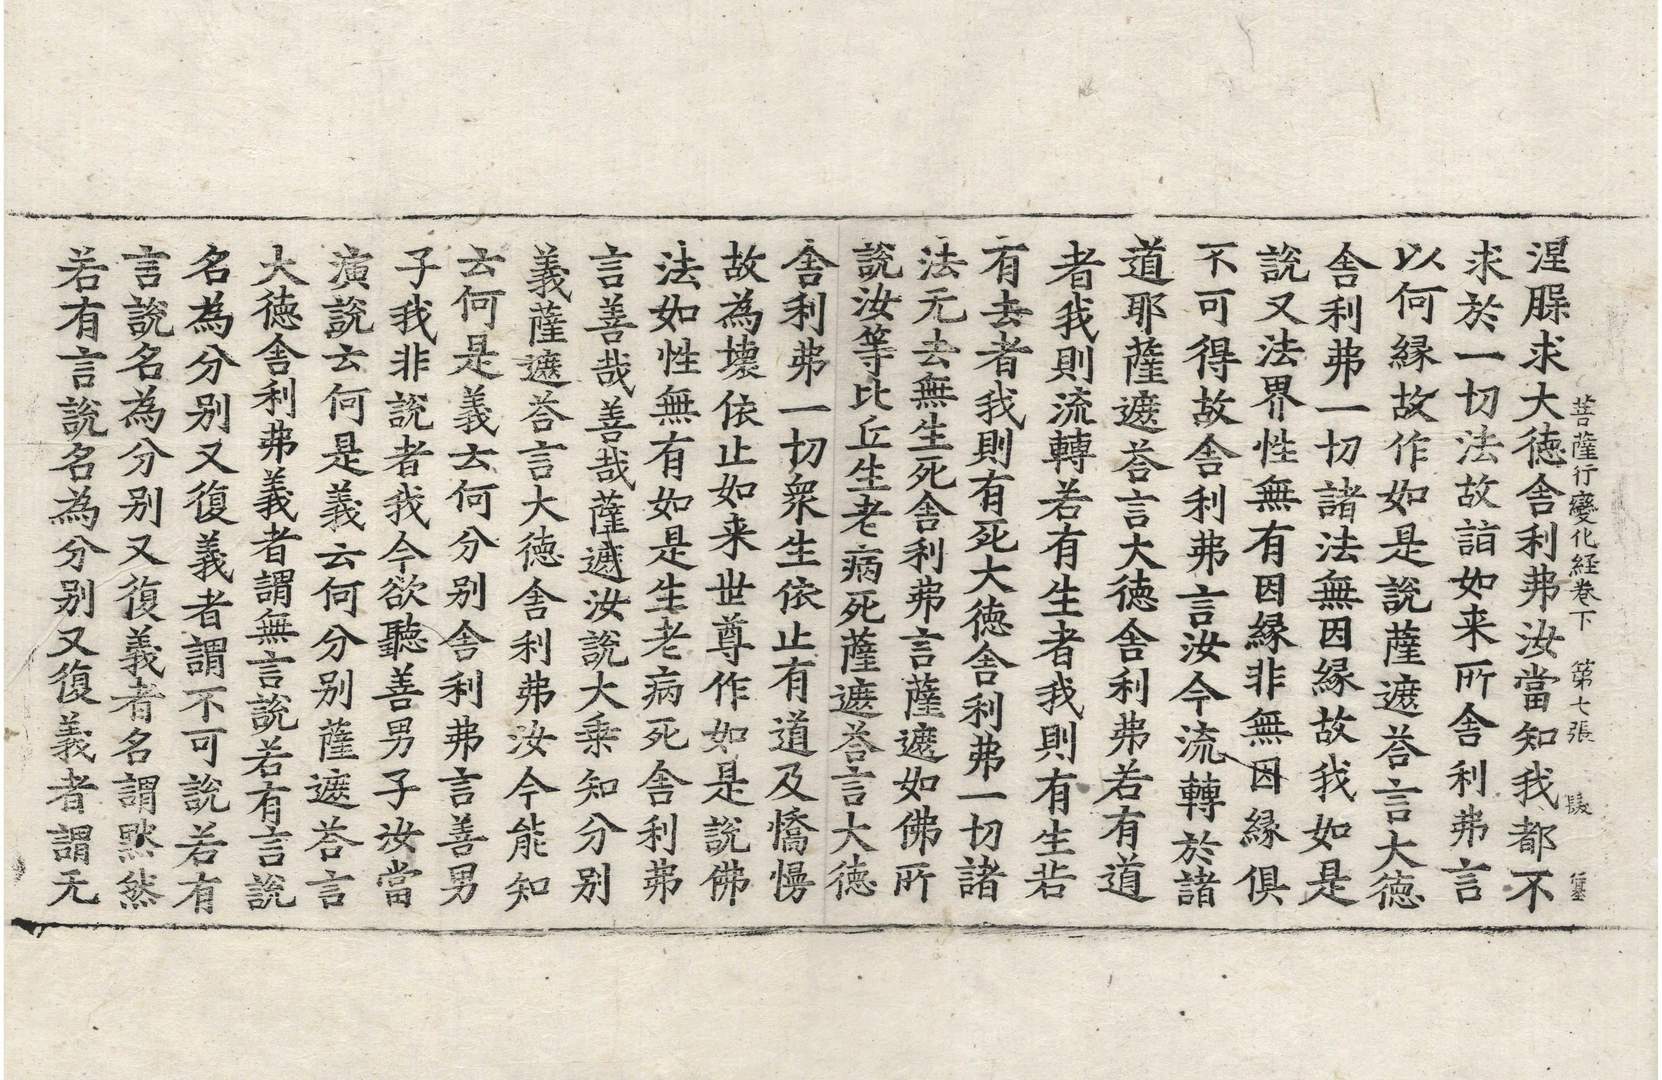 菩薩行變化経卷下 第七張 𩜙
涅脲求大德舍利弗汝當知我都不
求於一切法故詣如来所舍利弗言
以何縁故作如是說薩遮荅言大德
舍利弗一切諸法無因縁故我如是
說又法界性無有因縁非無因縁俱
不可得故舍利弗言汝今流轉於諸
道耶薩遮荅言大德舍利弗若有道
者我則流轉若有生者我則有生若
有去者我則有死大德舍利弗一切諸
法无去無生死舍利弗言薩遮如佛所
說汝等比丘生老病死薩遮荅言大德
舍利弗一切衆生依止有道及憍慢
故為壞依止如来世尊作如是說佛
法如性無有如是生老病死舍利弗
言善哉善哉薩遮汝說大乗知分别
義薩遮荅言大德舍利弗汝今能知
云何是義云何分别舍利弗言善男
子我非說者我今欲聽善男子汝當
演說云何是義云何分别薩遮荅言
大德舍利弗義者謂無言說若有言說
名為分别又復義者謂不可說若有
言說名為分别又復義者名謂黙然
若有言說名為分别又復義者謂无